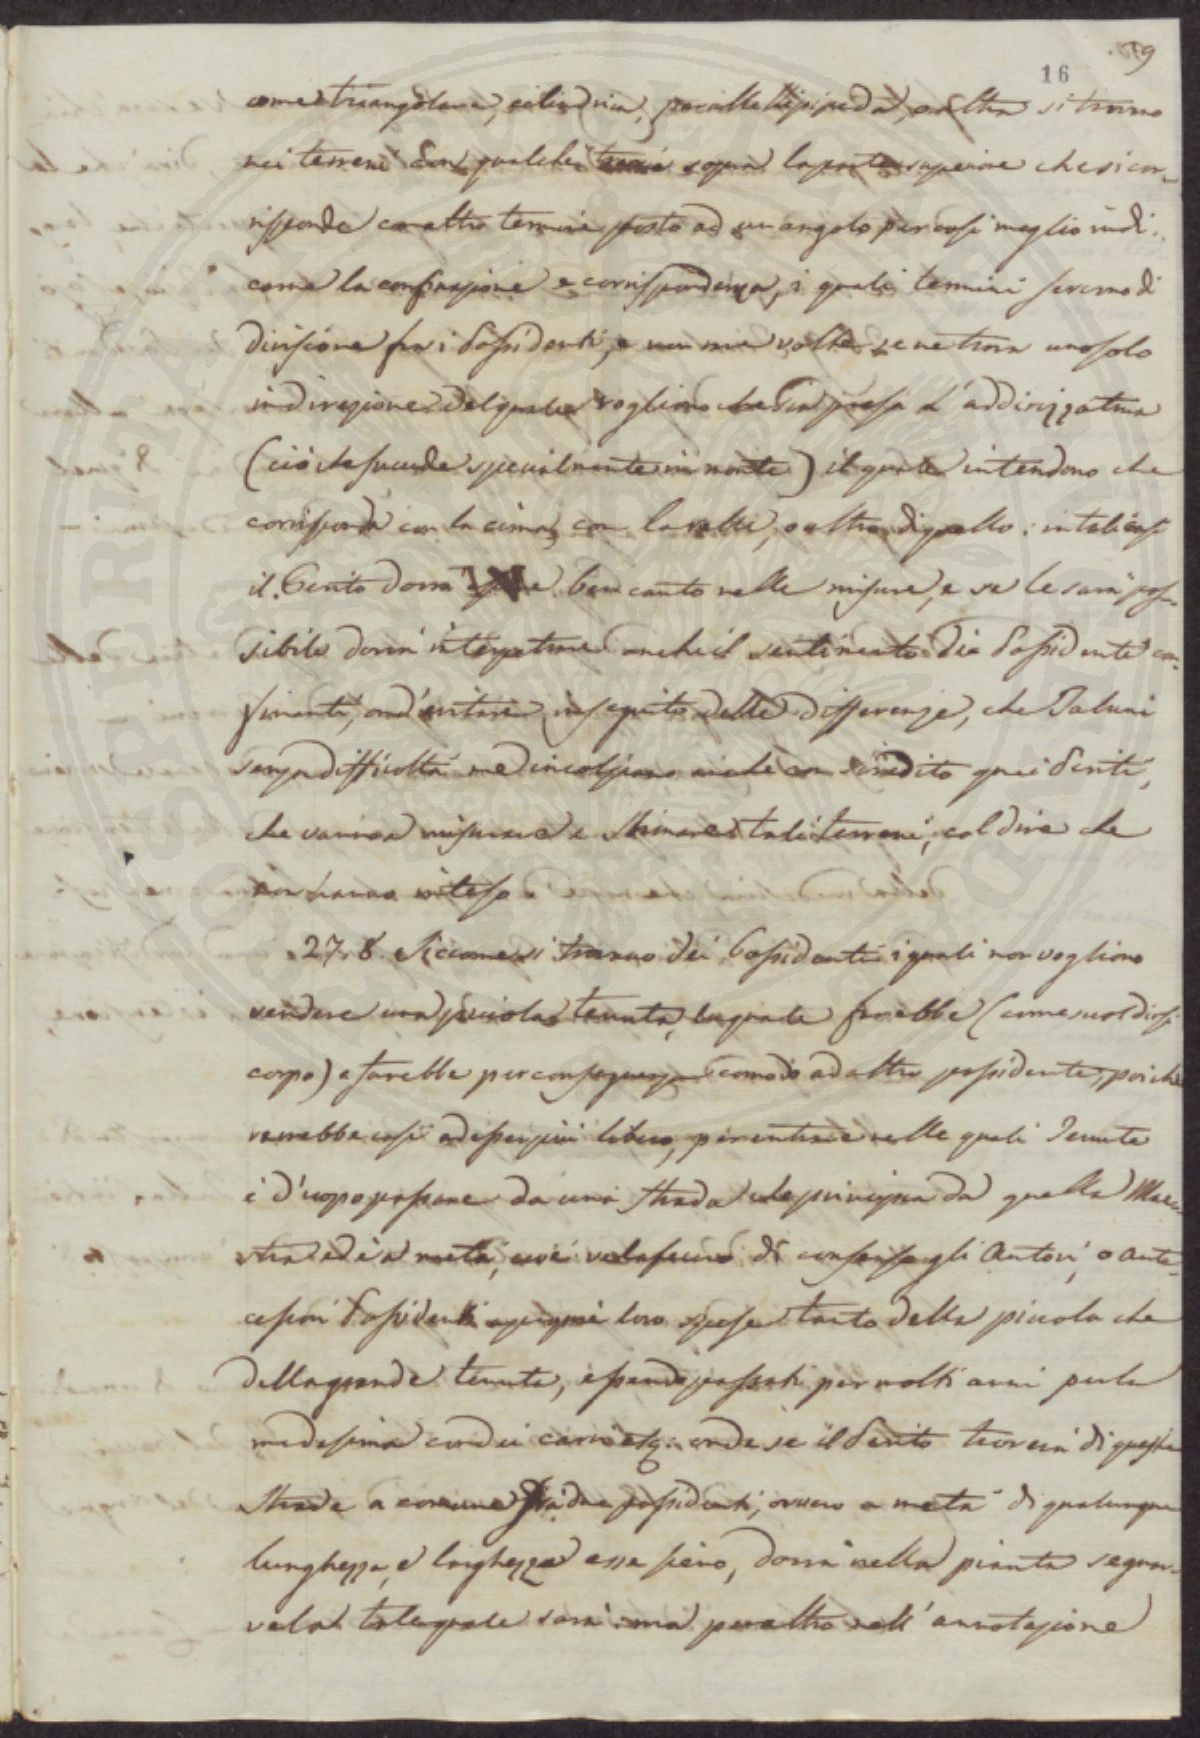 16
come triangolare, cilindrica, parallellepipeda, o altra si trovano
nei terreni con qualche sopra la parte superiore che si cor-
risponde con altro termine posto ad un angolo per così meglio indi-
carne la confinazione e corrispondenza, i quali termini servono di
divisione fra i Possidenti, e alcune volte se ne trova uno solo
in direzione del quale vogliono che sia presa l'addirizzatura
(ciò che succede specialmente in monte) il quale intendono che
corrisponda con la cima, con la valle, o altro di quello: in tali casi
il Perito dovrà ben cauto nelle misure, e se le sarà pos-
sibile dovrà interpetrare anche il sentimento dei Possidenti con-
finanti, ond'evitare in seguito delle differenze, che Taluni
senza difficoltà ne incolpano anche con discredito quei Periti,
che vanno a misurare e stimare tali terreni, col dire che
non hanno inteso
27. 8. Siccome si trovano dei Possidenti i quali non vogliono
vendere una piccola tenuta, la quale farebbe (come suol dirsi
corpo) e sarebbe per conseguenza comodo ad altro possidente, poiché
verrebbe così ad esser più libero, per entrare nelle quali Tenute
è d'uopo passare da una strada che principia da quella Mae-
stra ed è a metà, cioè ve la fecero di consenso gli Autori, o ante-
cessori Possidenti a proprie loro spese tanto della piccola che
della grande tenuta, essendo passati per molti anni per la
medesima con dei carri esq: onde se il Perito troverà di queste
strade a comune fra due possidenti, ovvero a metà di qualunque
lunghezza, e larghezza esse sieno, dovrà nella pianta segnar-
vela tale quale sarà: ma peraltro nell'annotazione